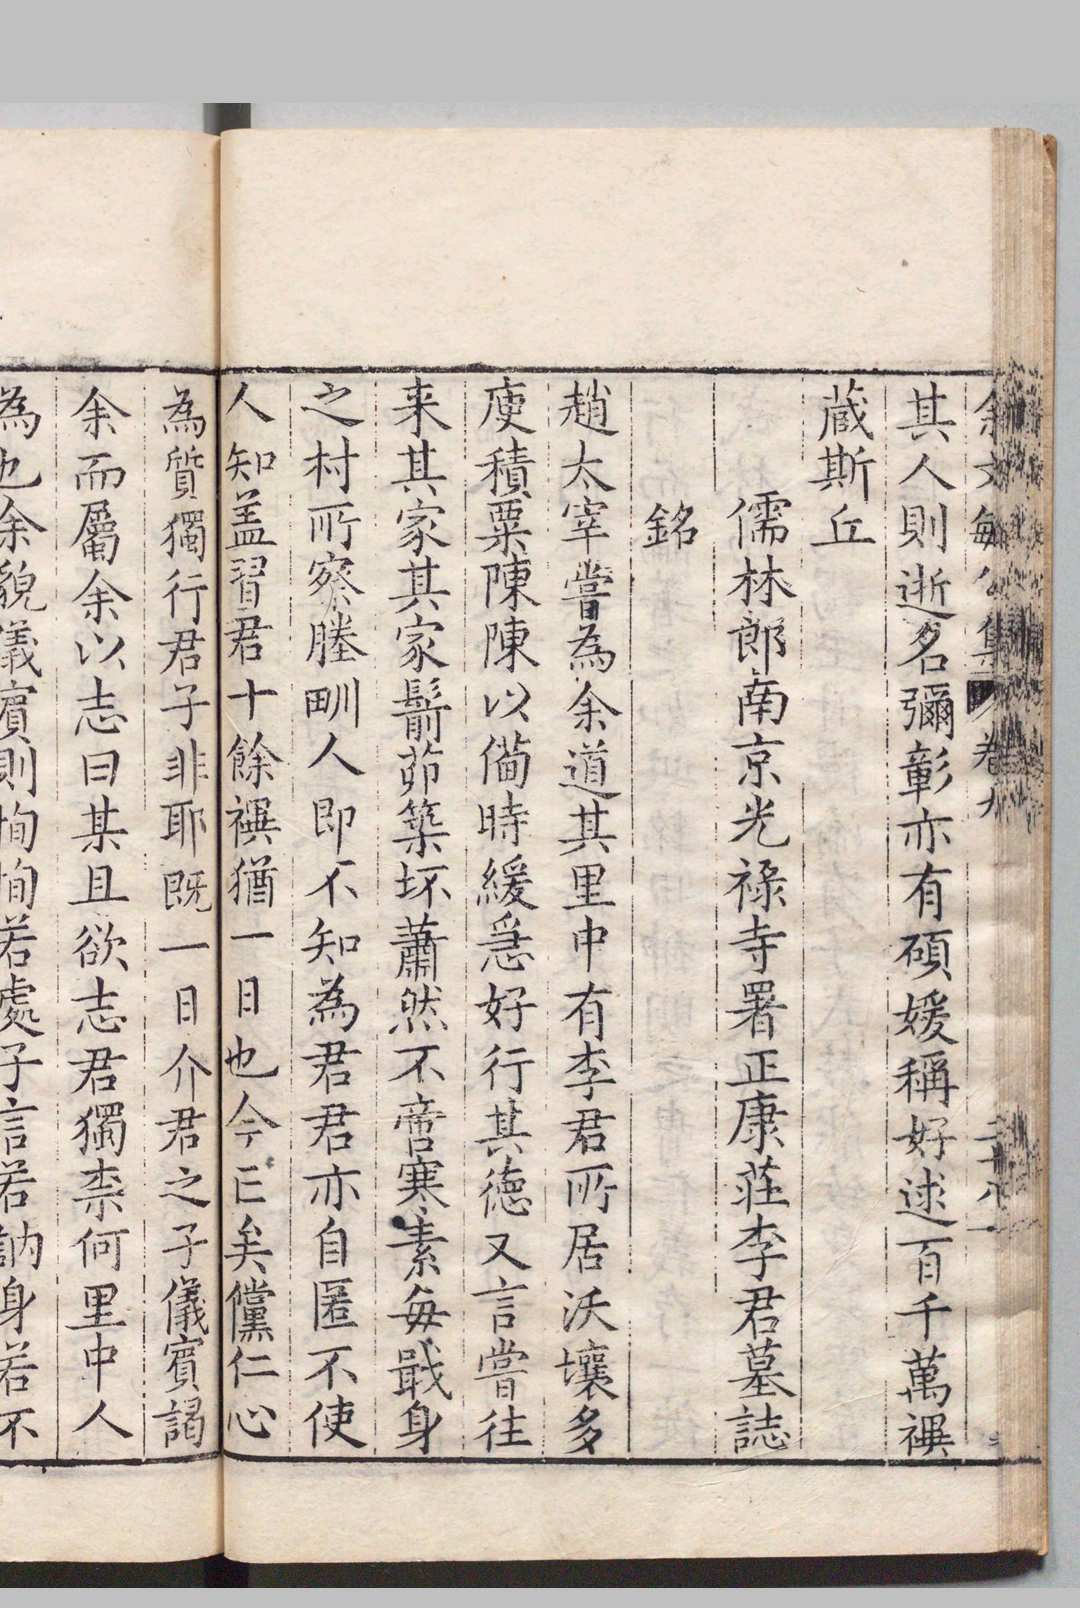 余文敏公集 卷九 三十八
其人則逝名彌彰亦有碩媛稱好逑百千萬禩
蔵斯丘
儒林郎南京光祿寺署正康莊李君墓誌
銘
趙太宰嘗為余道其里中有李君所居沃壤多
庾積粟陳陳以備時緩急好行其德又言嘗往
来其家其家鬋茆築坏蕭然不啻寒素每戢身
之村所察塍甽人即不知為君君亦自匿不使
人知盖習君十餘禩猶一日也今已矣儻仁心
為質獨行君子非耶既一日介君之子儀賓謁
余而屬余以志曰某且欲志君獨柰何里中人
為也余貌儀賓則恂恂若處子言若訥身若不